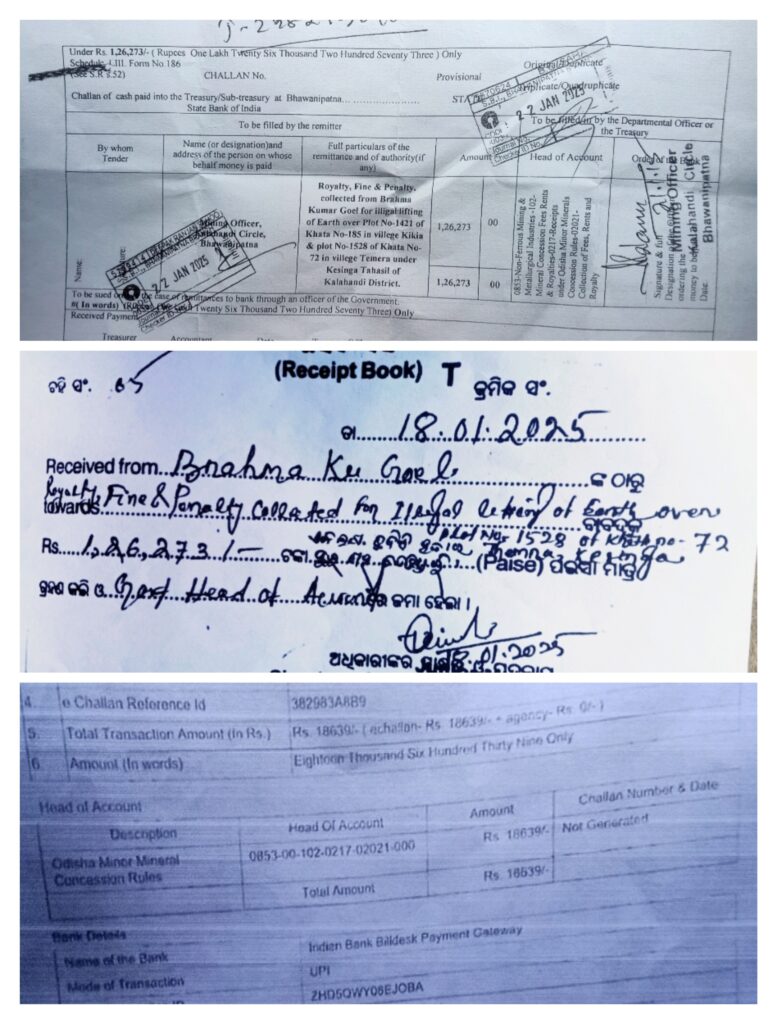 Under Rs. 1,26,273/- ( Rupees One Lakh Twenty Six Thousand Two Hundred Seventy Three ) Only
Schedule-LIII. Form No.186
(See S.R 8.52)
CHALLAN No.
Provisional
Original/Duplicate
Triplicate/Quadruplicate
Challan of cash paid into the Treasury/Sub-treasury at Bhawanipatna
State Bank of India
22 JAN 2025
To be filled by the remitter
To be filled in by the Departmental Officer or the Treasury
By whom Tender
Name (or designation)and address of the person on whose behalf money is paid
Full particulars of the remittance and of authority(if any)
Amount
Head of Account
Order of the Bank
Name:
Signature:
Mining Officer,
Kalahandi Circle,
Bhawanipatna
22 JAN 2025
Royalty, Fine & Penalty,
collected from Brahma
Kumar Goel for illigal lifting
of Earth over Plot No-1421 of
Khata No-185 in villege Kikia
& plot no-1528 of Khata No-
72 in villege Temera under
Kesinga Tahasil of
Kalahandi District.
1,26,273 00
1,26,273 00
0853-Non-Ferrous Mining &
Metallurgical Industries -102-
Mineral Concession Fees Rents
& Royalties-0217-Receipts
under Odisha Minor Minerals
Concession Rules-02021-
Collection of Fees, Rents and
Royalty
Signature & full
Designation of the officer
ordering the
money to be
Date.
Mining Officer
Kalahandi Circle
Bhawanipatna
To be sued on the case of remittances to bank through an officer of the Government.
Twenty Six Thousand Two Hundred Seventy Three) Only
Received Payment
Treasurer Accountant
(Receipt Book) T
ବହି ସଂ. 65
କ୍ରମିକ ସଂ.
ତା 18.01.2025
Received from Brahma Ku Goel ଙ୍କ ଠାରୁ
towards Royalty, Fine & Penalty Collected for Illegal of Earth over ବାବଦକୁ
Plot No- 1528 of Khata no- 72
Rs. 1,26,273/- Kesinga (Paise) ପଇସା ମାତ୍ର
ଗ୍ରହଣ କରି ଓ Head of ଜମା ହେଲା ।
18.01.2025
ଅଧିକାରୀଙ୍କର
4. e Challan Reference Id 382983A8B9
5. Total Transaction Amount (In Rs.) Rs. 18639/- ( echallan- Rs. 18639/- + agency- Rs. 0/- )
6. Amount (In words) Eighteen Thousand Six Hundred Thirty Nine Only
Head of Account
Description Head Of Account Amount Challan Number & Date
Odisha Minor Mineral Concession Rules 0853-00-102-0217-02021-000 Rs. 18639/- Not Generated
Total Amount Rs. 18639/-
Bank Details
Name of the Bank Indian Bank Billdesk Payment Gateway
Mode of Transaction UPI
ZHD5QWY06EJOBA